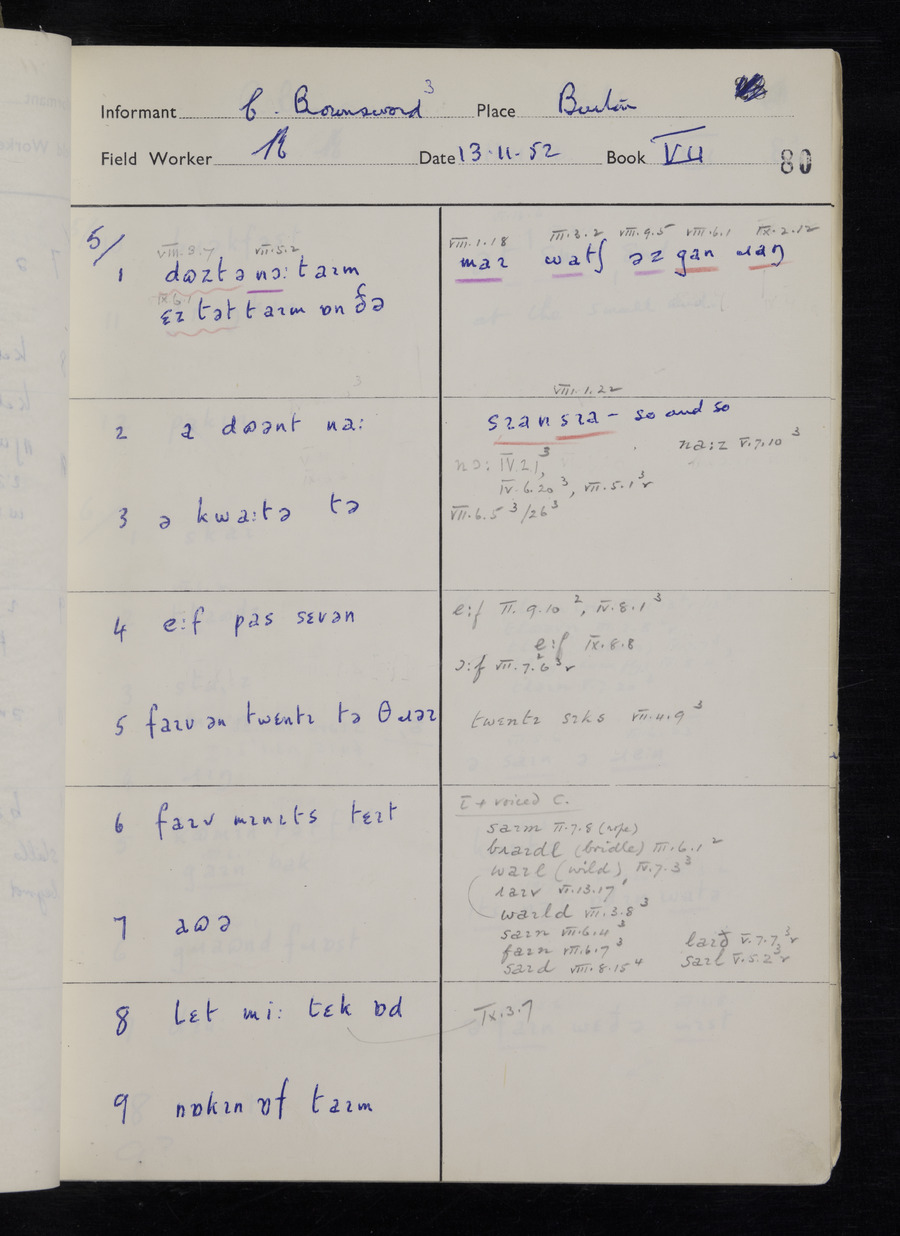 Informant C. Brownsword 3 Place Burton
Field Worker Date 13.11.52 Book VII
80
5/
VIII.3.7 VII.5.2
1 dɷɪt ə nɔ: taɪm
IX.6.1
ɛɪ tət taɪm ɒn ðə
VIII.1.18 III.3.2 VIII.9.5 VIII.6.1 IX.2.12
maɪ watʃ əz gan ɹaŋ
VIII.1.22
2 a dɷənt na:
sɪansɪa – so and so
na:z V.7.10 3
nɔ: IV.2.1, 3
IV.6.20 3, VII.5.1 3 r
3 ə kwa:tə tə
VII.6.5 3/26 3
4 e:f pas sɛvən
e:f II.9.10 2, IV.8.1 3
e:f IX.8.8
ɔ:f VII.7.6 3 r
5 faɪv ən twentɪ tə θɹəɪ
twentɪ sɪks VII.4.9 3
6 faɪv mɪnɪts tɛɪt
ī + voiced C.
saɪm II.7.8 (rope)
bɹaɪdl (bridle) III.6.1 2
waɪl (wild) IV.7.3 3
ɹaɪv VI.13.17 1
7 aɷə
waɪld VII.3.8 3
saɪn VII.6.4 3
faɪn VII.6.7 3 laɪð V.7.7 3 r
saɪd VIII.8.15 4 saɪl V.5.2 3 r
8 lɛt mi: tɛk ɒd
IX.3.7
9 nɒkɪn ɒf taɪm